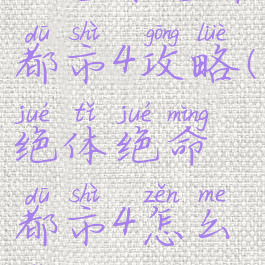 dū shì gōng lüè
都市4攻略(
jué tǐ jué mìng
绝体绝命
dū shì zěn me
都市4怎么